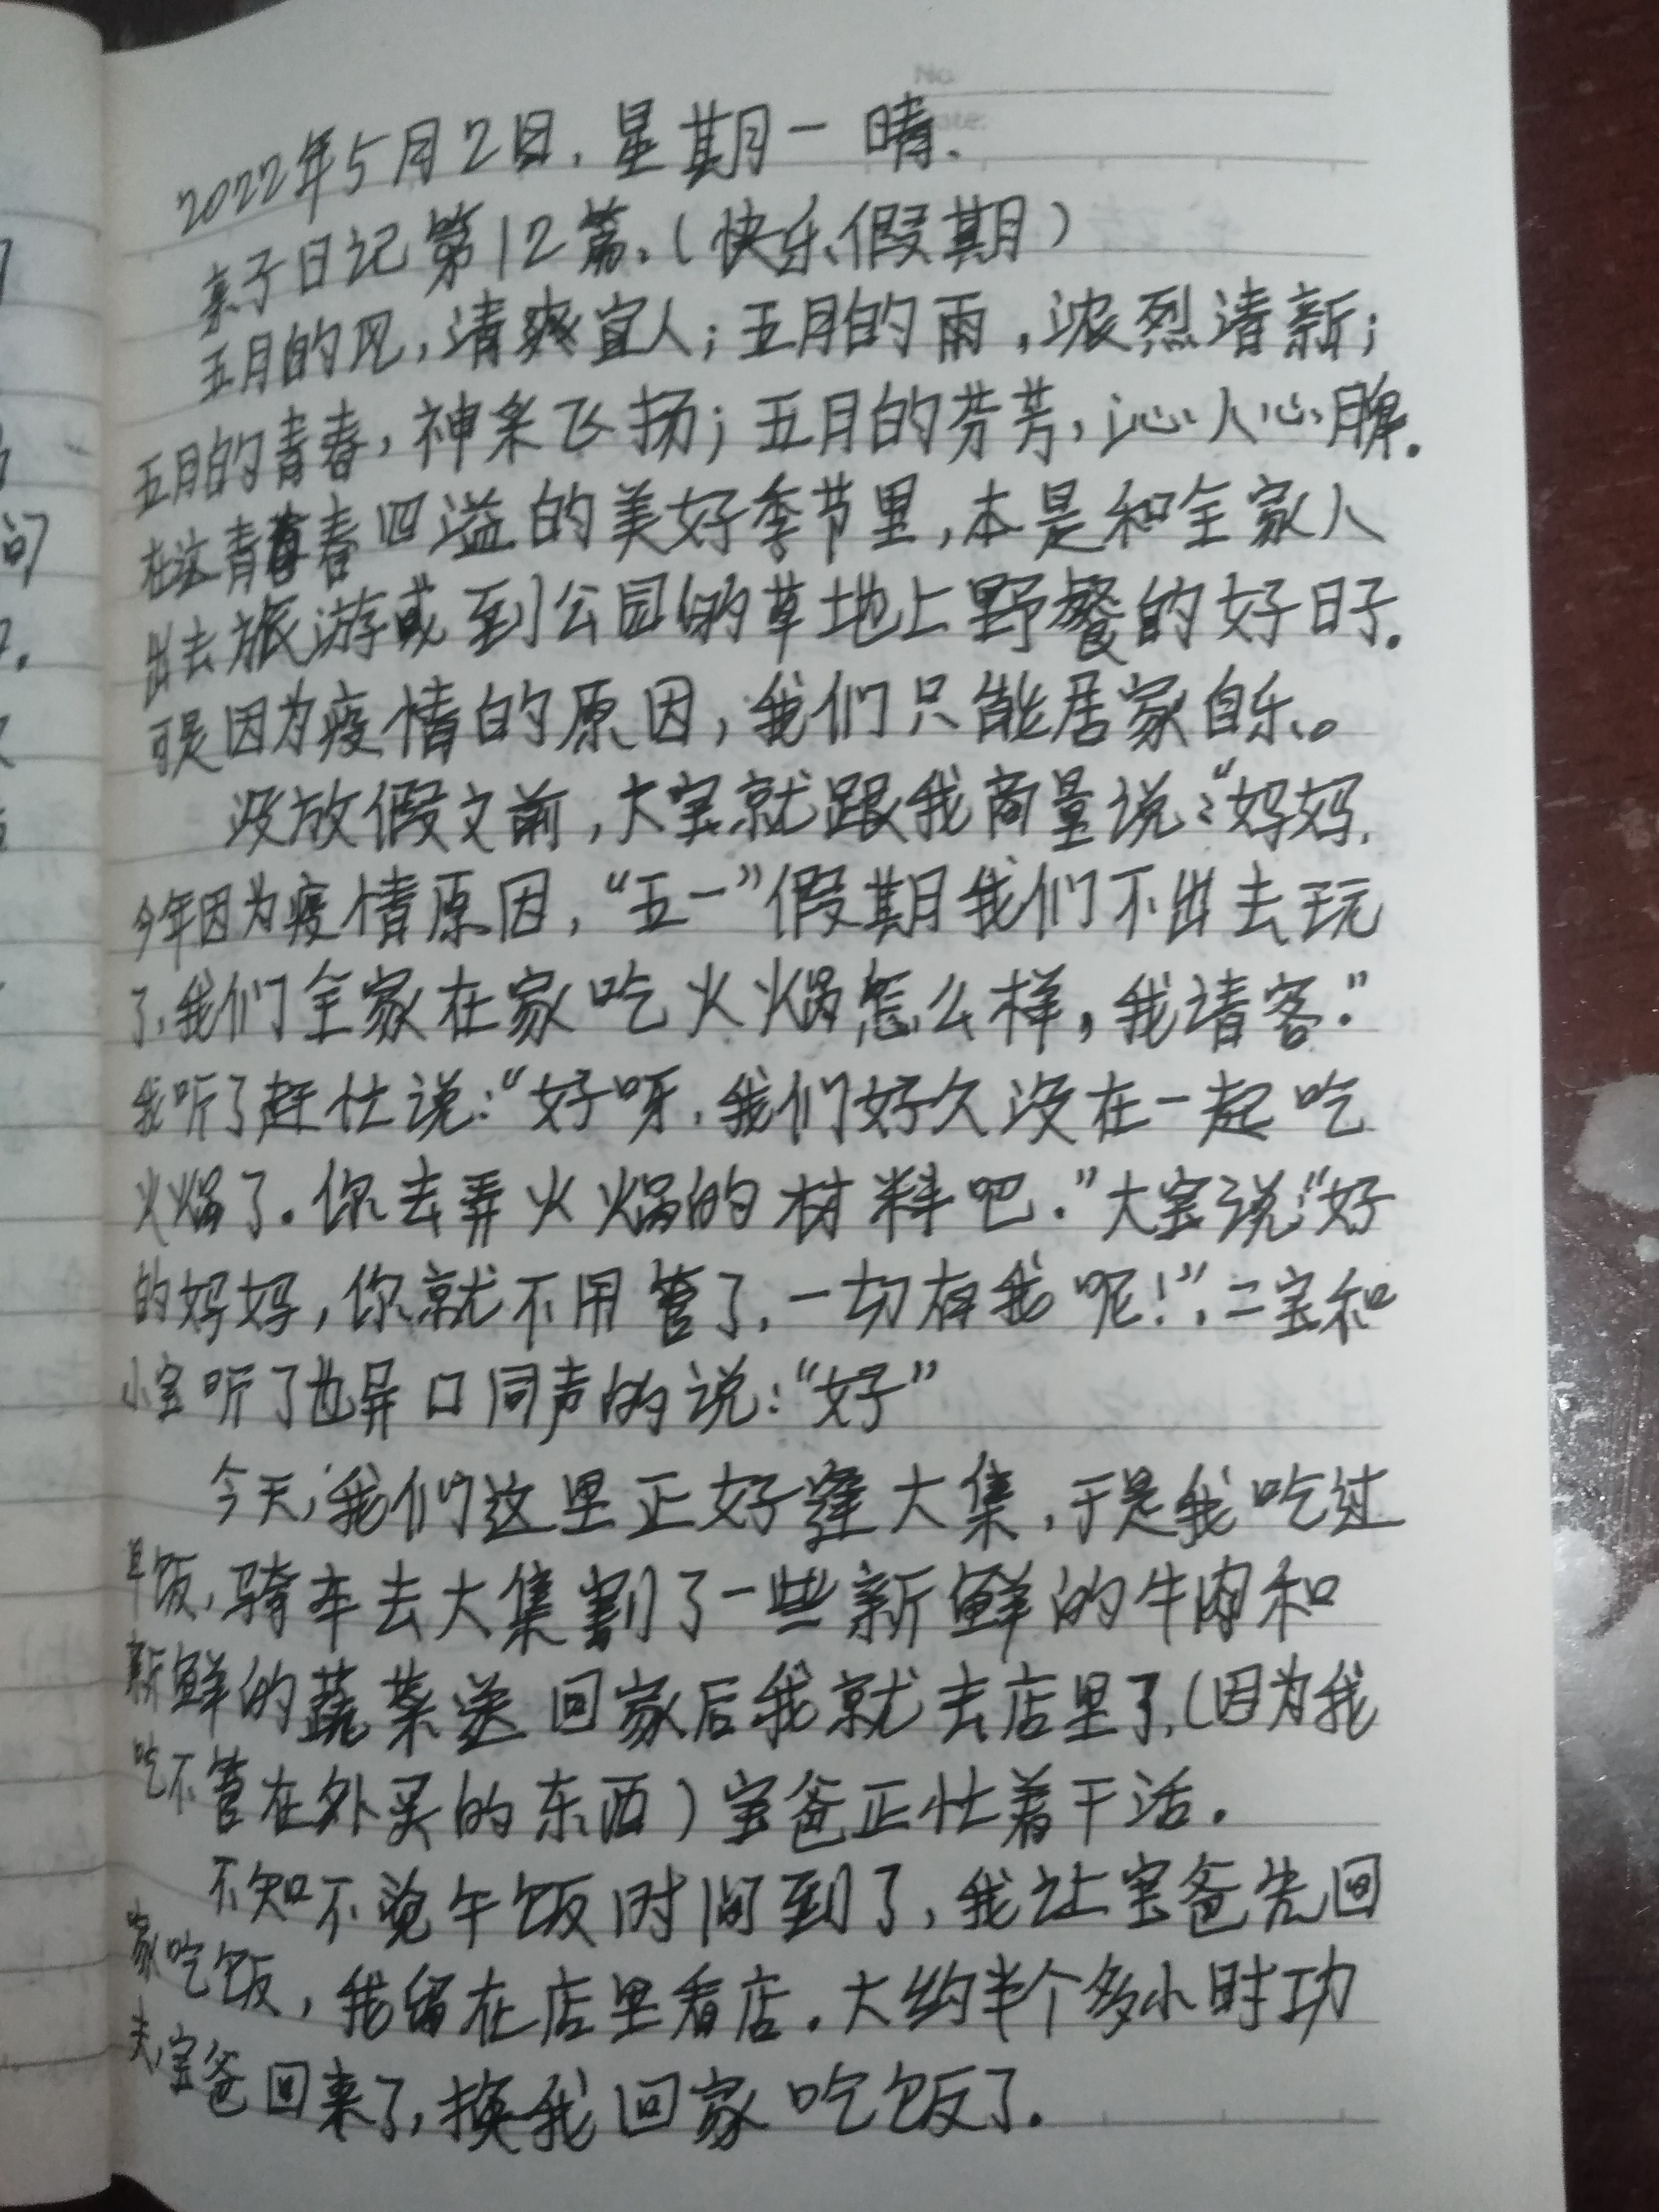 No.
Date:
2022年5月2日.星期一 晴.
亲子日记第12篇.(快乐假期)
五月的风,清爽宜人;五月的雨,浓烈清新;
五月的青春,神采飞扬;五月的芬芳,沁人心脾.
在这青春四溢的美好季节里,本是和全家人
出去旅游或到公园的草地上野餐的好日子.
可是因为疫情的原因,我们只能居家自乐。
没放假之前,大宝就跟我商量说:“妈妈,
今年因为疫情原因,“五一”假期我们不出去玩
了,我们全家在家吃火锅怎么样,我请客.”
我听了赶忙说:“好呀,我们好久没在一起吃
火锅了.你去弄火锅的材料吧.”大宝说:“好
的妈妈,你就不用管了,一切有我呢!”,二宝和
小宝听了也异口同声的说:“好”
今天,我们这里正好逢大集,于是我吃过
早饭,骑车去大集割了一些新鲜的牛肉和
新鲜的蔬菜送回家后我就去店里了,(因为我
吃不管在外买的东西)宝爸正忙着干活.
不知不觉午饭时间到了,我让宝爸先回
家吃饭,我留在店里看店.大约半个多小时功
夫,宝爸回来了,换我回家吃饭了.